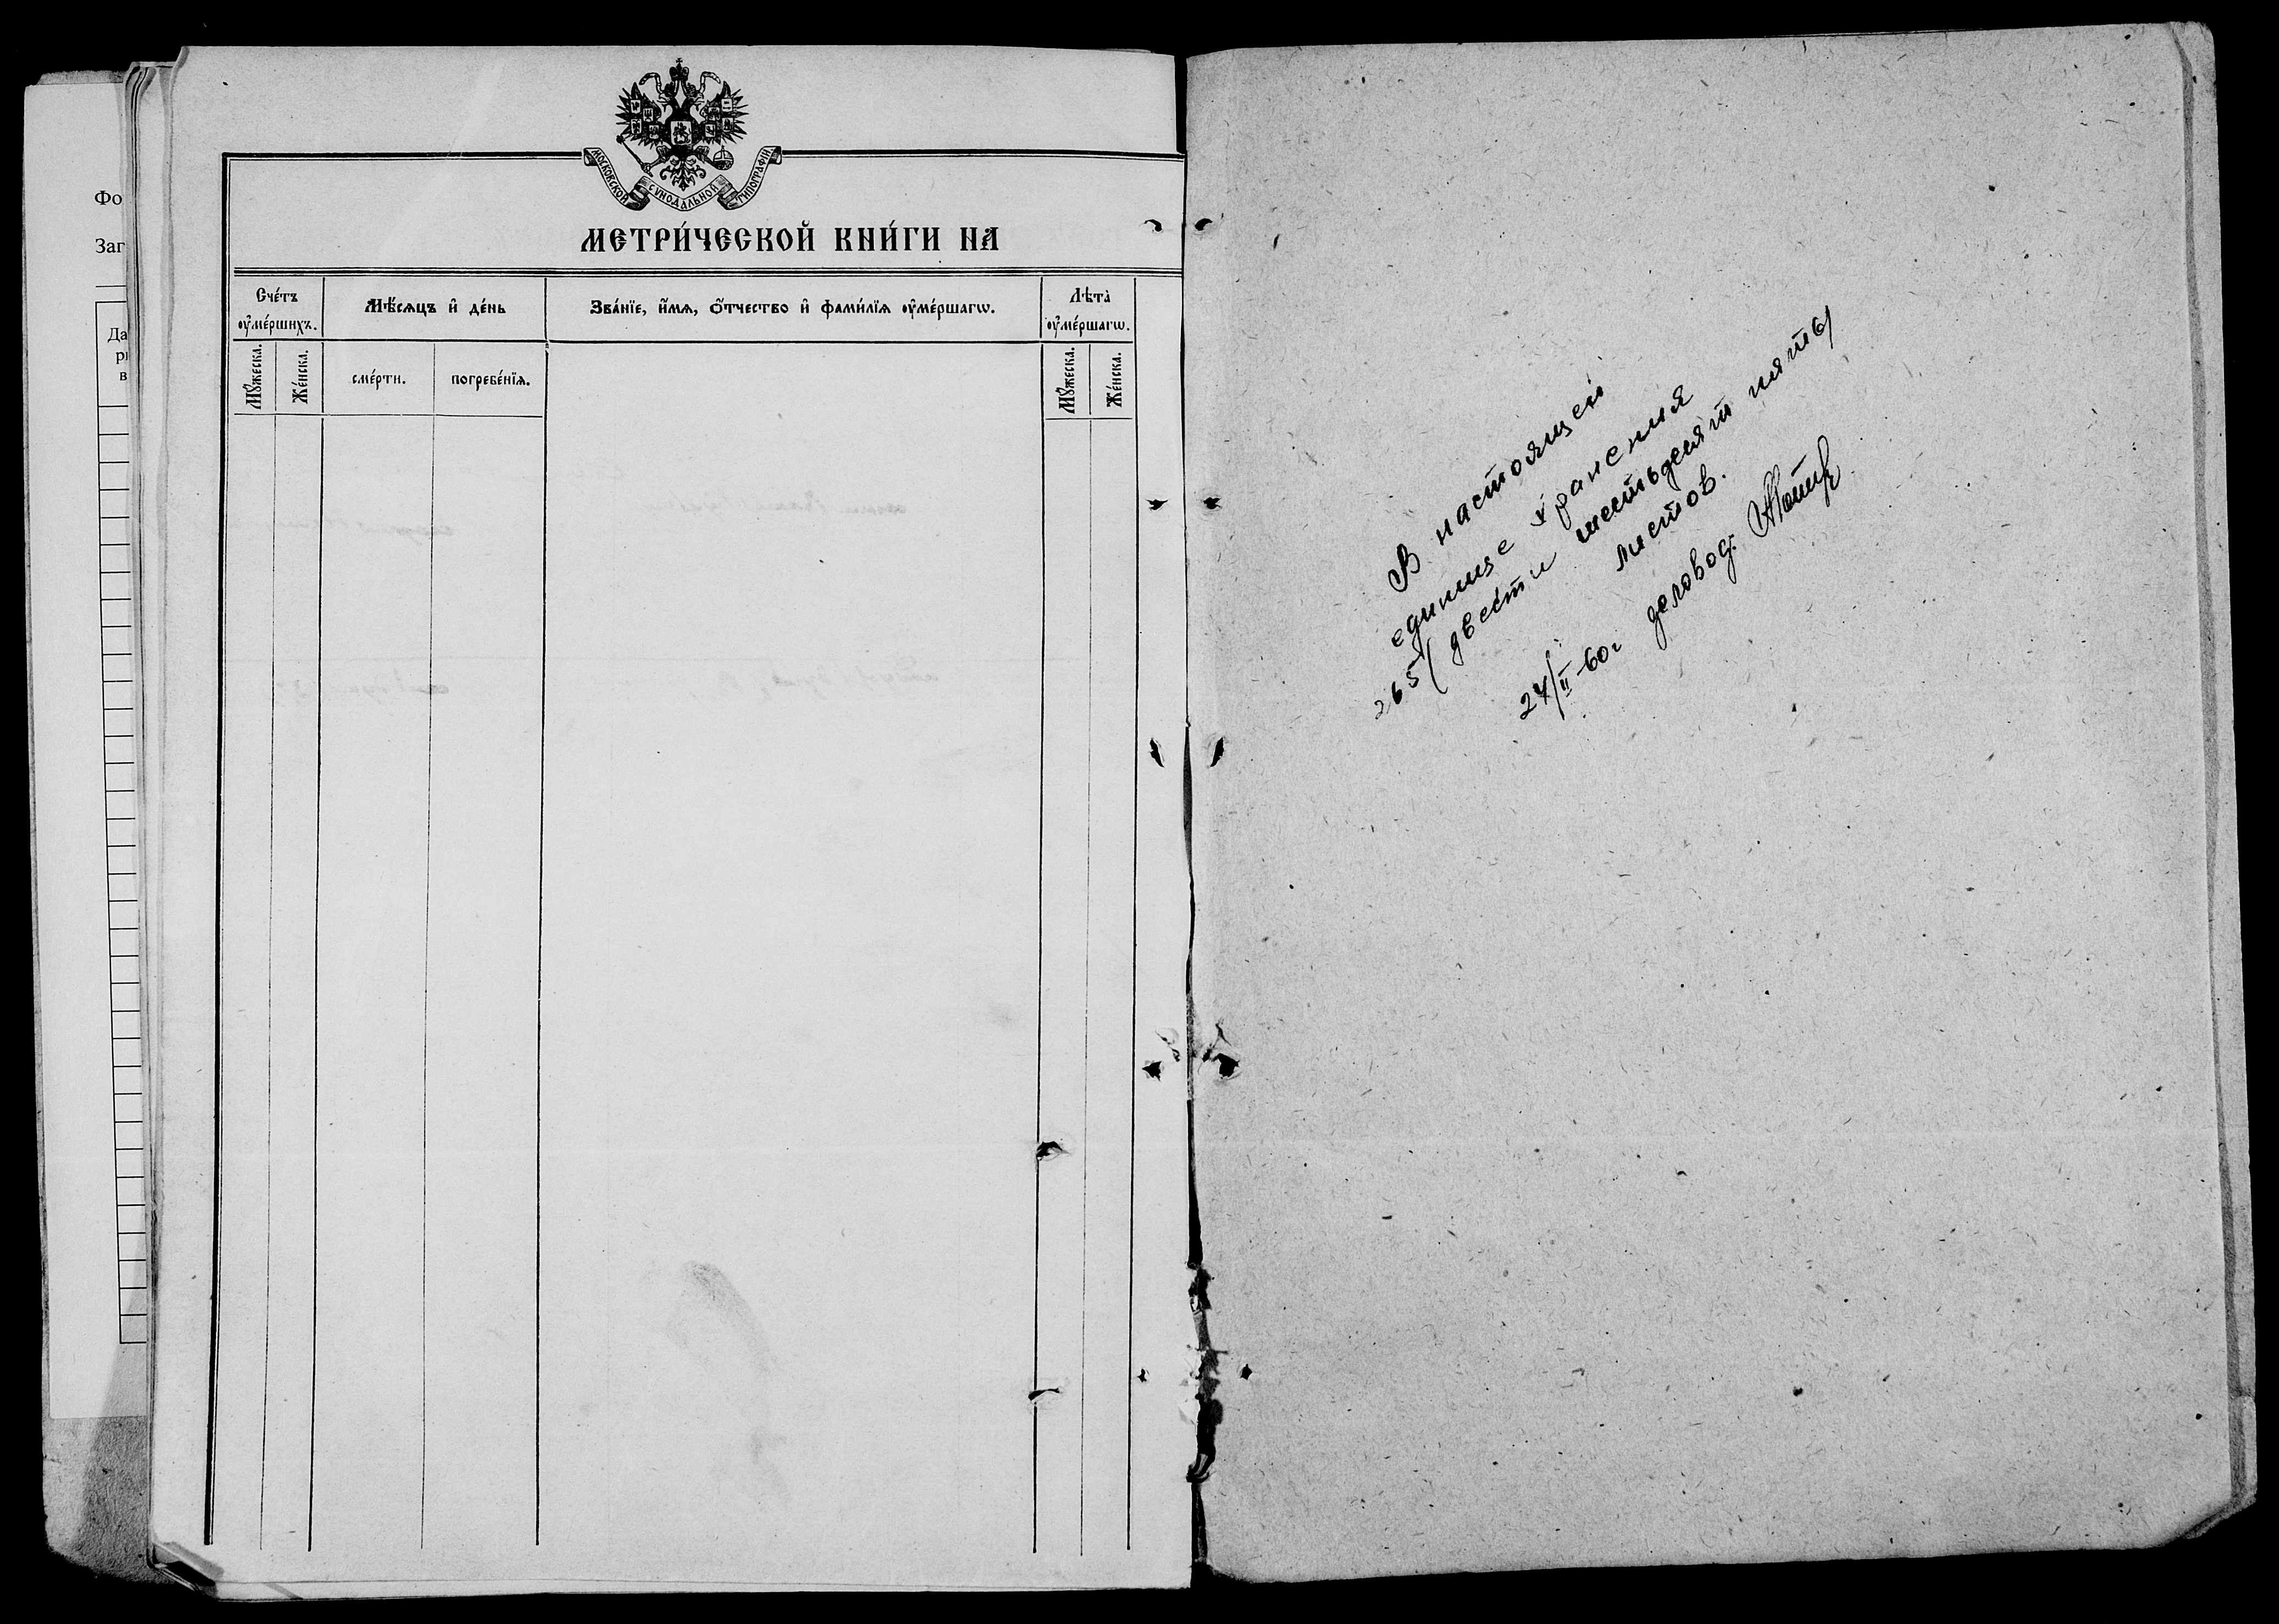 Фо
Заг
Да
в
МОСКОВСКОЙ СѴНОДАЛЬНОЙ ТИПОГРАФІИ.
МЕТРИ́ЧЕСКОЙ КНИ́ГИ НА
Сче́тъ ᲂу҆ме́ршихъ.
Мѣ́сѧцъ и҆ де́нь
Зва́нїе, и҆́мѧ, ѻ҆́тчество и҆ фами́лїѧ ᲂу҆ме́ршагѡ.
Лѣта̀ ᲂу҆ме́ршагѡ.
Мꙋ́жеска.
Же́нска.
сме́рти.
погребе́нїѧ.
Мꙋ́жеска.
Же́нска.
В настоящей
единице хранения
265 (двести шестьдесят пять)
листов.
24/II-60г деловод.